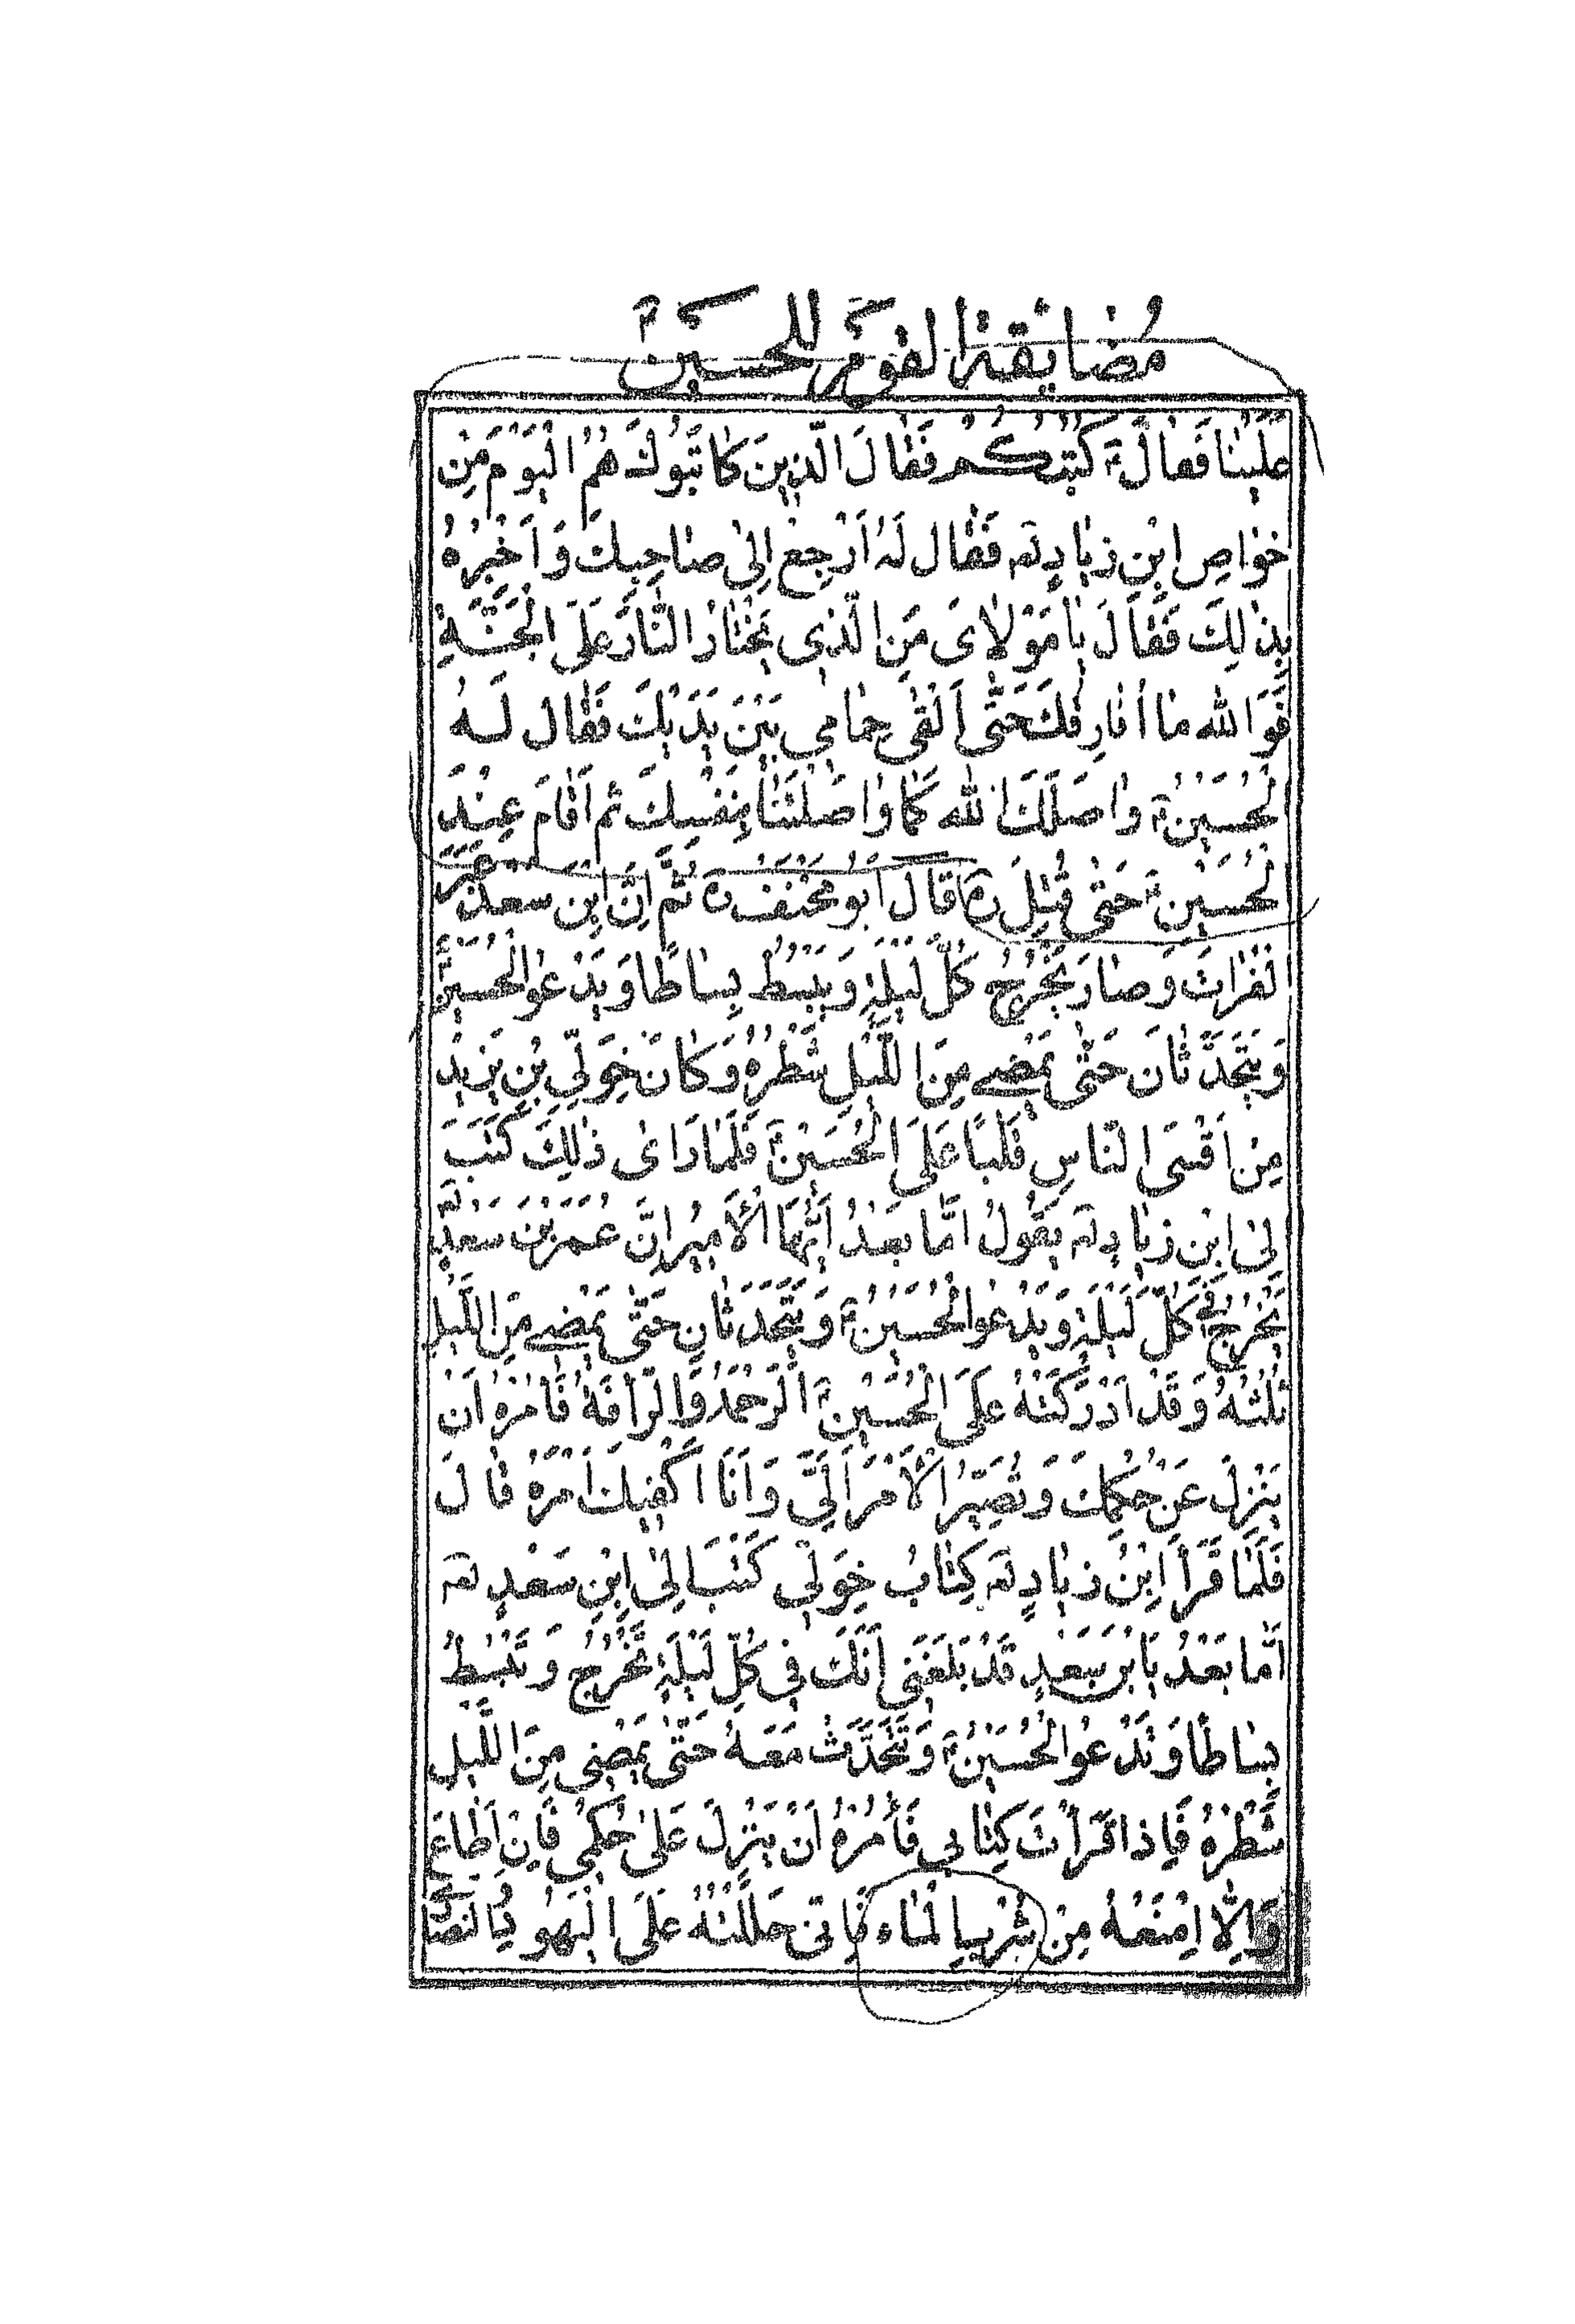 مُضَايَقَةُ الْقَوْمِ لِلْحُسَيْنِ ع
عَلَيْنَا فَقَالَ ع كُتُبُكُمْ فَقَالَ الَّذِينَ كَاتَبُوكَ هُمُ الْيَوْمَ مِنْ
خَوَاصِ ابْنِ زِيَادٍ لعه فَقَالَ لَهُ اَرْجِعْ اِلىٰ صَاحِبِكَ وَ اَخْبِرْهُ
بِذٰلِكَ فَقَالَ يَا مَوْلَايَ مَنِ الَّذِي يَخْتَارُ النَّارَ عَلَى الْجَنَّةِ
فَوَاللهِ مَا اُفَارِقُكَ حَتّٰى اَلْقٰى حِمَامِي بَيْنَ يَدَيْكَ فَقَالَ لَهُ
الْحُسَيْنُ ع وَاصَلَكَ اللهُ كَمَا وَاصَلْتَنَا بِنَفْسِكَ ثم اَقَامَ عِنْدَ
الْحُسَيْنِ ع حَتّٰى قُتِلَ ره قَالَ اَبُو مِخْنَفٍ ره ثُمَّ اِنَّ ابْنَ سَعْدٍ عَبَرَ
الْفُرَاتَ وَصَارَ يَخْرُجُ كُلَّ لَيْلَةٍ وَ يَبْسُطُ بِسَاطًا وَ يَدْعُو الْحُسَيْنَ ع
وَ يَتَحَدَّثَانِ حَتّٰى يَمْضِيَ مِنَ اللَّيْلِ شَطْرُهُ وَ كَانَ خَوَلِّي بْنُ يَزِيدَ
مِنْ اَقْسَى النَّاسِ قَلْبًا عَلَى الْحُسَيْنِ ع فَلَمَّا رَاىٰ ذٰلِكَ كَتَبَ
اِلىٰ ابْنِ زِيَادٍ لعه يَقُولُ اَمَّا بَعْدُ اَيُّهَا الْاَمِيرُ اِنَّ عُمَرَ بْنَ سَعْدٍ لعه
يَخْرُجُ فِي كُلِّ لَيْلَةٍ وَ يَدْعُو الْحُسَيْنَ ع وَ يَتَحَدَّثَانِ حَتّٰى يَمْضِيَ مِنَ اللَّيْلِ
ثُلُثُهُ وَ قَدْ اَدْرَكَتْهُ عَلَى الْحُسَيْنِ ع الرَّحْمَةُ وَ الرَّافَةُ فَامُرْهُ اَنْ
يَنْزِلَ عَنْ حُكْمِكَ وَ تُصَيِّرُ الْاَمْرَ اِلَيَّ وَ اَنَا اَكْفِيكَ اَمْرَهُ قَالَ
فَلَمَّا قَرَأَ ابْنُ زِيَادٍ لعه كِتَابَ خَوَلِّي كَتَبَ اِلىٰ ابْنِ سَعْدٍ لعه
اَمَّا بَعْدُ يَا بْنَ سَعْدٍ قَدْ بَلَغَنِي اَنَّكَ فِي كُلِّ لَيْلَةٍ تَخْرُجُ وَ تَبْسُطُ
بِسَاطًا وَ تَدْعُو الْحُسَيْنَ ع وَ تَتَحَدَّثُ مَعَهُ حَتّٰى يَمْضِيَ مِنَ اللَّيْلِ
شَطْرُهُ فَاِذَا قَرَأْتَ كِتَابِي فَأْمُرْهُ اَنْ يَنْزِلَ عَلىٰ حُكْمِي فَاِنْ اَطَاعَ
وَ اِلَّا امْنَعْهُ مِنْ شُرْبِ الْمَاءِ فَاِنِّي حَلَّلْتُهُ عَلَى الْيَهُودِ وَ النَّصَارىٰ